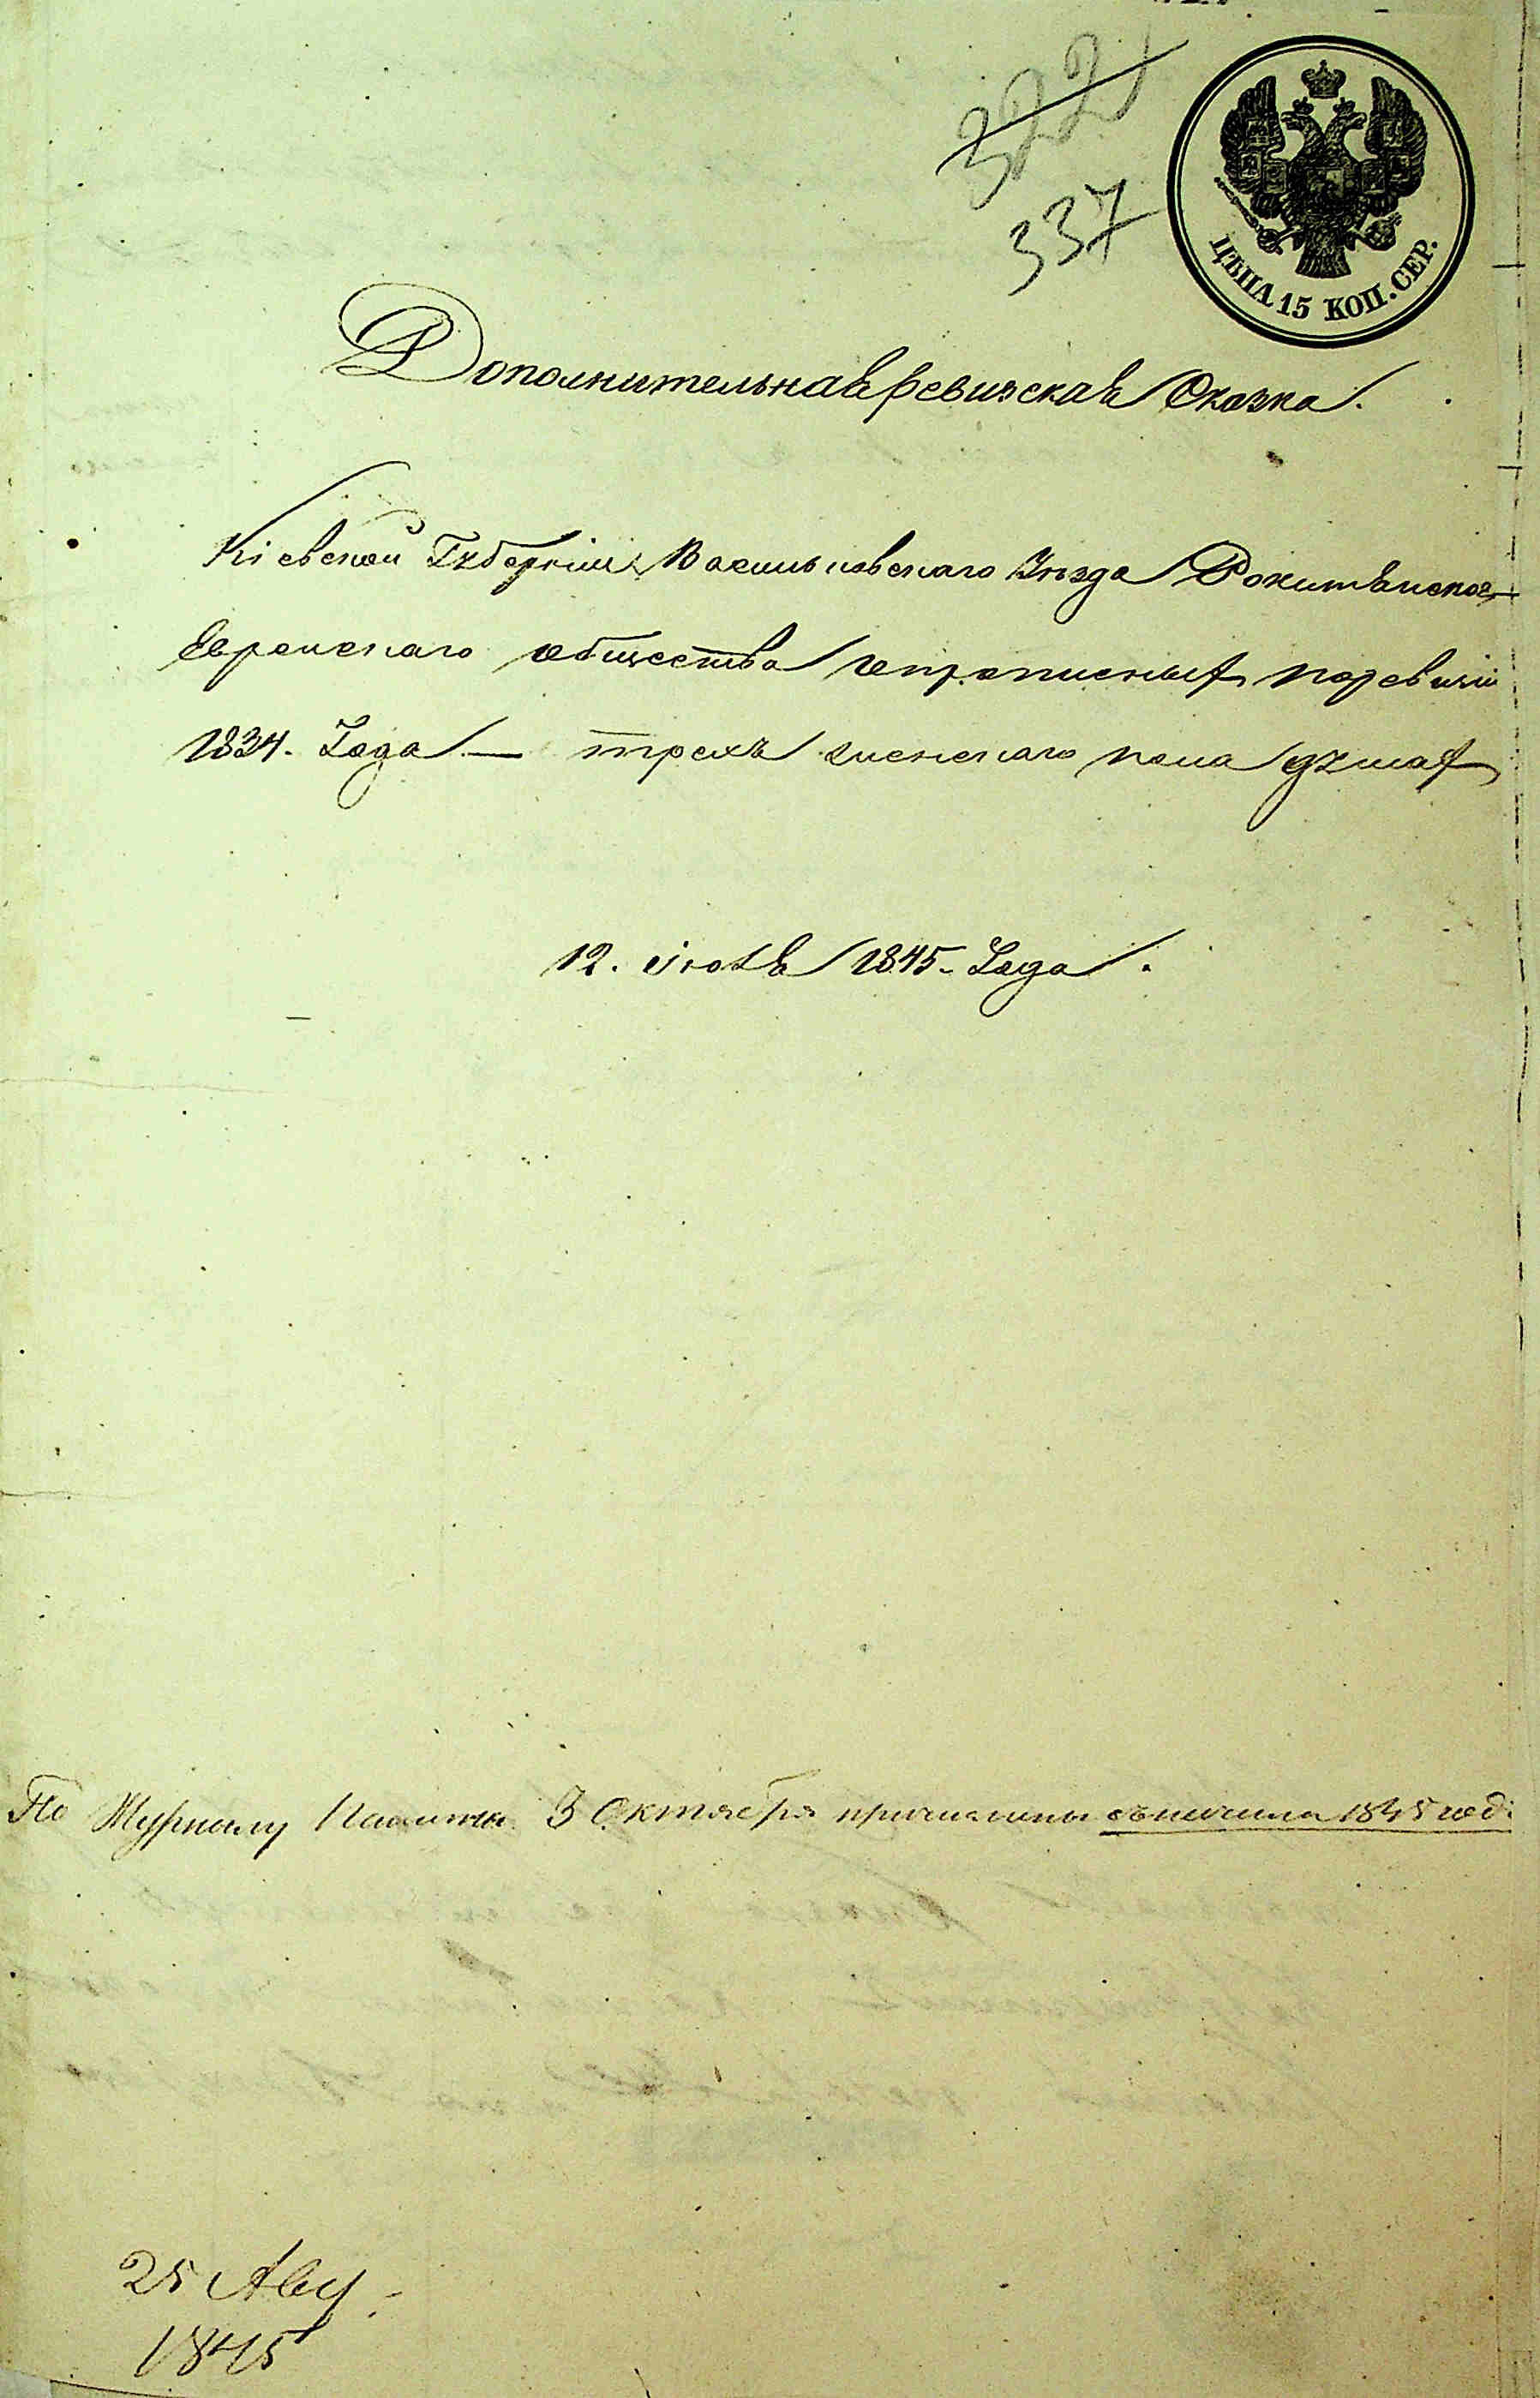 3221
337
ЦѢНА 15 КОП. СЕР.
Дополнительная ревизская Сказка.
Кіевской Губерніи Васильковскаго Уезда Рокитянскаго
Еврейскаго общества о прописных по ревизіи
1834. Года — трехъ мужскаго пола душах
12. іюля 1845. Года.
По Журналу Палаты 3 Октября причислены съ начала 1845 года
25 Авг.
1845